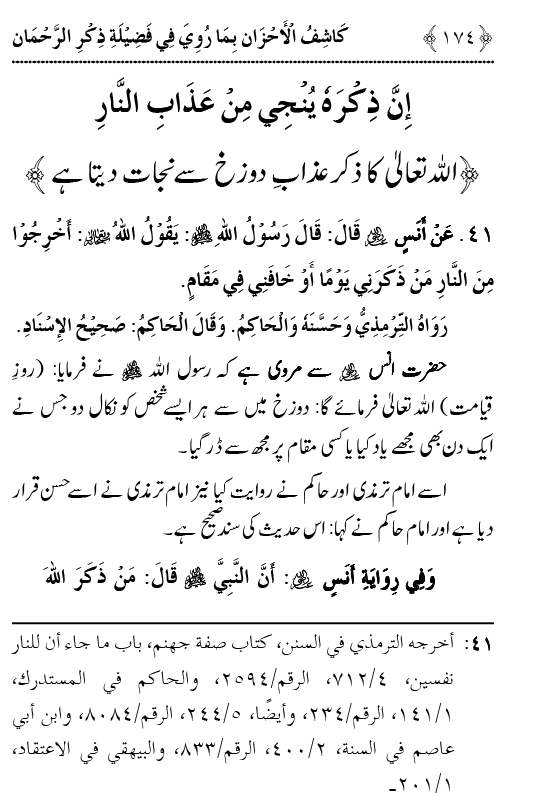 ﴿١٧٤﴾ كَاشِفُ الْأَحْزَان بِمَا رُوِيَ فِي فَضِيْلَةِ ذِكْرِ الرَّحْمَان
إِنَّ ذِكْرَهُ يُنْجِي مِنْ عَذَابِ النَّارِ
﴿اللہ تعالیٰ کا ذکر عذابِ دوزخ سے نجات دیتا ہے﴾
٤١. عَنْ أَنَسٍ ﷺ قَالَ: قَالَ رَسُوْلُ اللهِ ﷺ: يَقُوْلُ اللهُ: أَخْرِجُوْا
مِنَ النَّارِ مَنْ ذَكَرَنِي يَوْمًا أَوْ خَافَنِي فِي مَقَامٍ.
رَوَاهُ التِّرْمِذِيُّ وَحَسَّنَهُ وَالْحَاكِمُ. وَقَالَ الْحَاكِمُ: صَحِيْحُ الإِسْنَادِ.
حضرت انس سے مروی ہے کہ رسول اللہ ﷺ نے فرمایا: (روزِ
قیامت) اللہ تعالیٰ فرمائے گا: دوزخ میں سے ہر ایسے شخص کو نکال دو جس نے
ایک دن بھی مجھے یاد کیا یا کسی مقام پر مجھ سے ڈر گیا۔
اسے امام ترمذی اور حاکم نے روایت کیا نیز امام ترمذی نے اسے حسن قرار
دیا ہے اور امام حاکم نے کہا: اس حدیث کی سند صحیح ہے۔
وَفِي رِوَايَةِ أَنَسٍ: أَنَّ النَّبِيَّ ﷺ قَالَ: مَنْ ذَكَرَ اللهَ
٤١: أخرجه الترمذي في السنن، كتاب صفة جهنم، باب ما جاء أن للنار
نفسين، ٤/٧١٢، الرقم/٢٥٩٤، والحاكم في المستدرك،
١/١٤١، الرقم/٢٣٤، وأيضًا، ٥/٢٤٤، الرقم/٨٠٨٤، وابن أبي
عاصم في السنة، ٢/٤٠٠، الرقم/٨٣٣، والبيهقي في الاعتقاد،
١/٢٠١۔